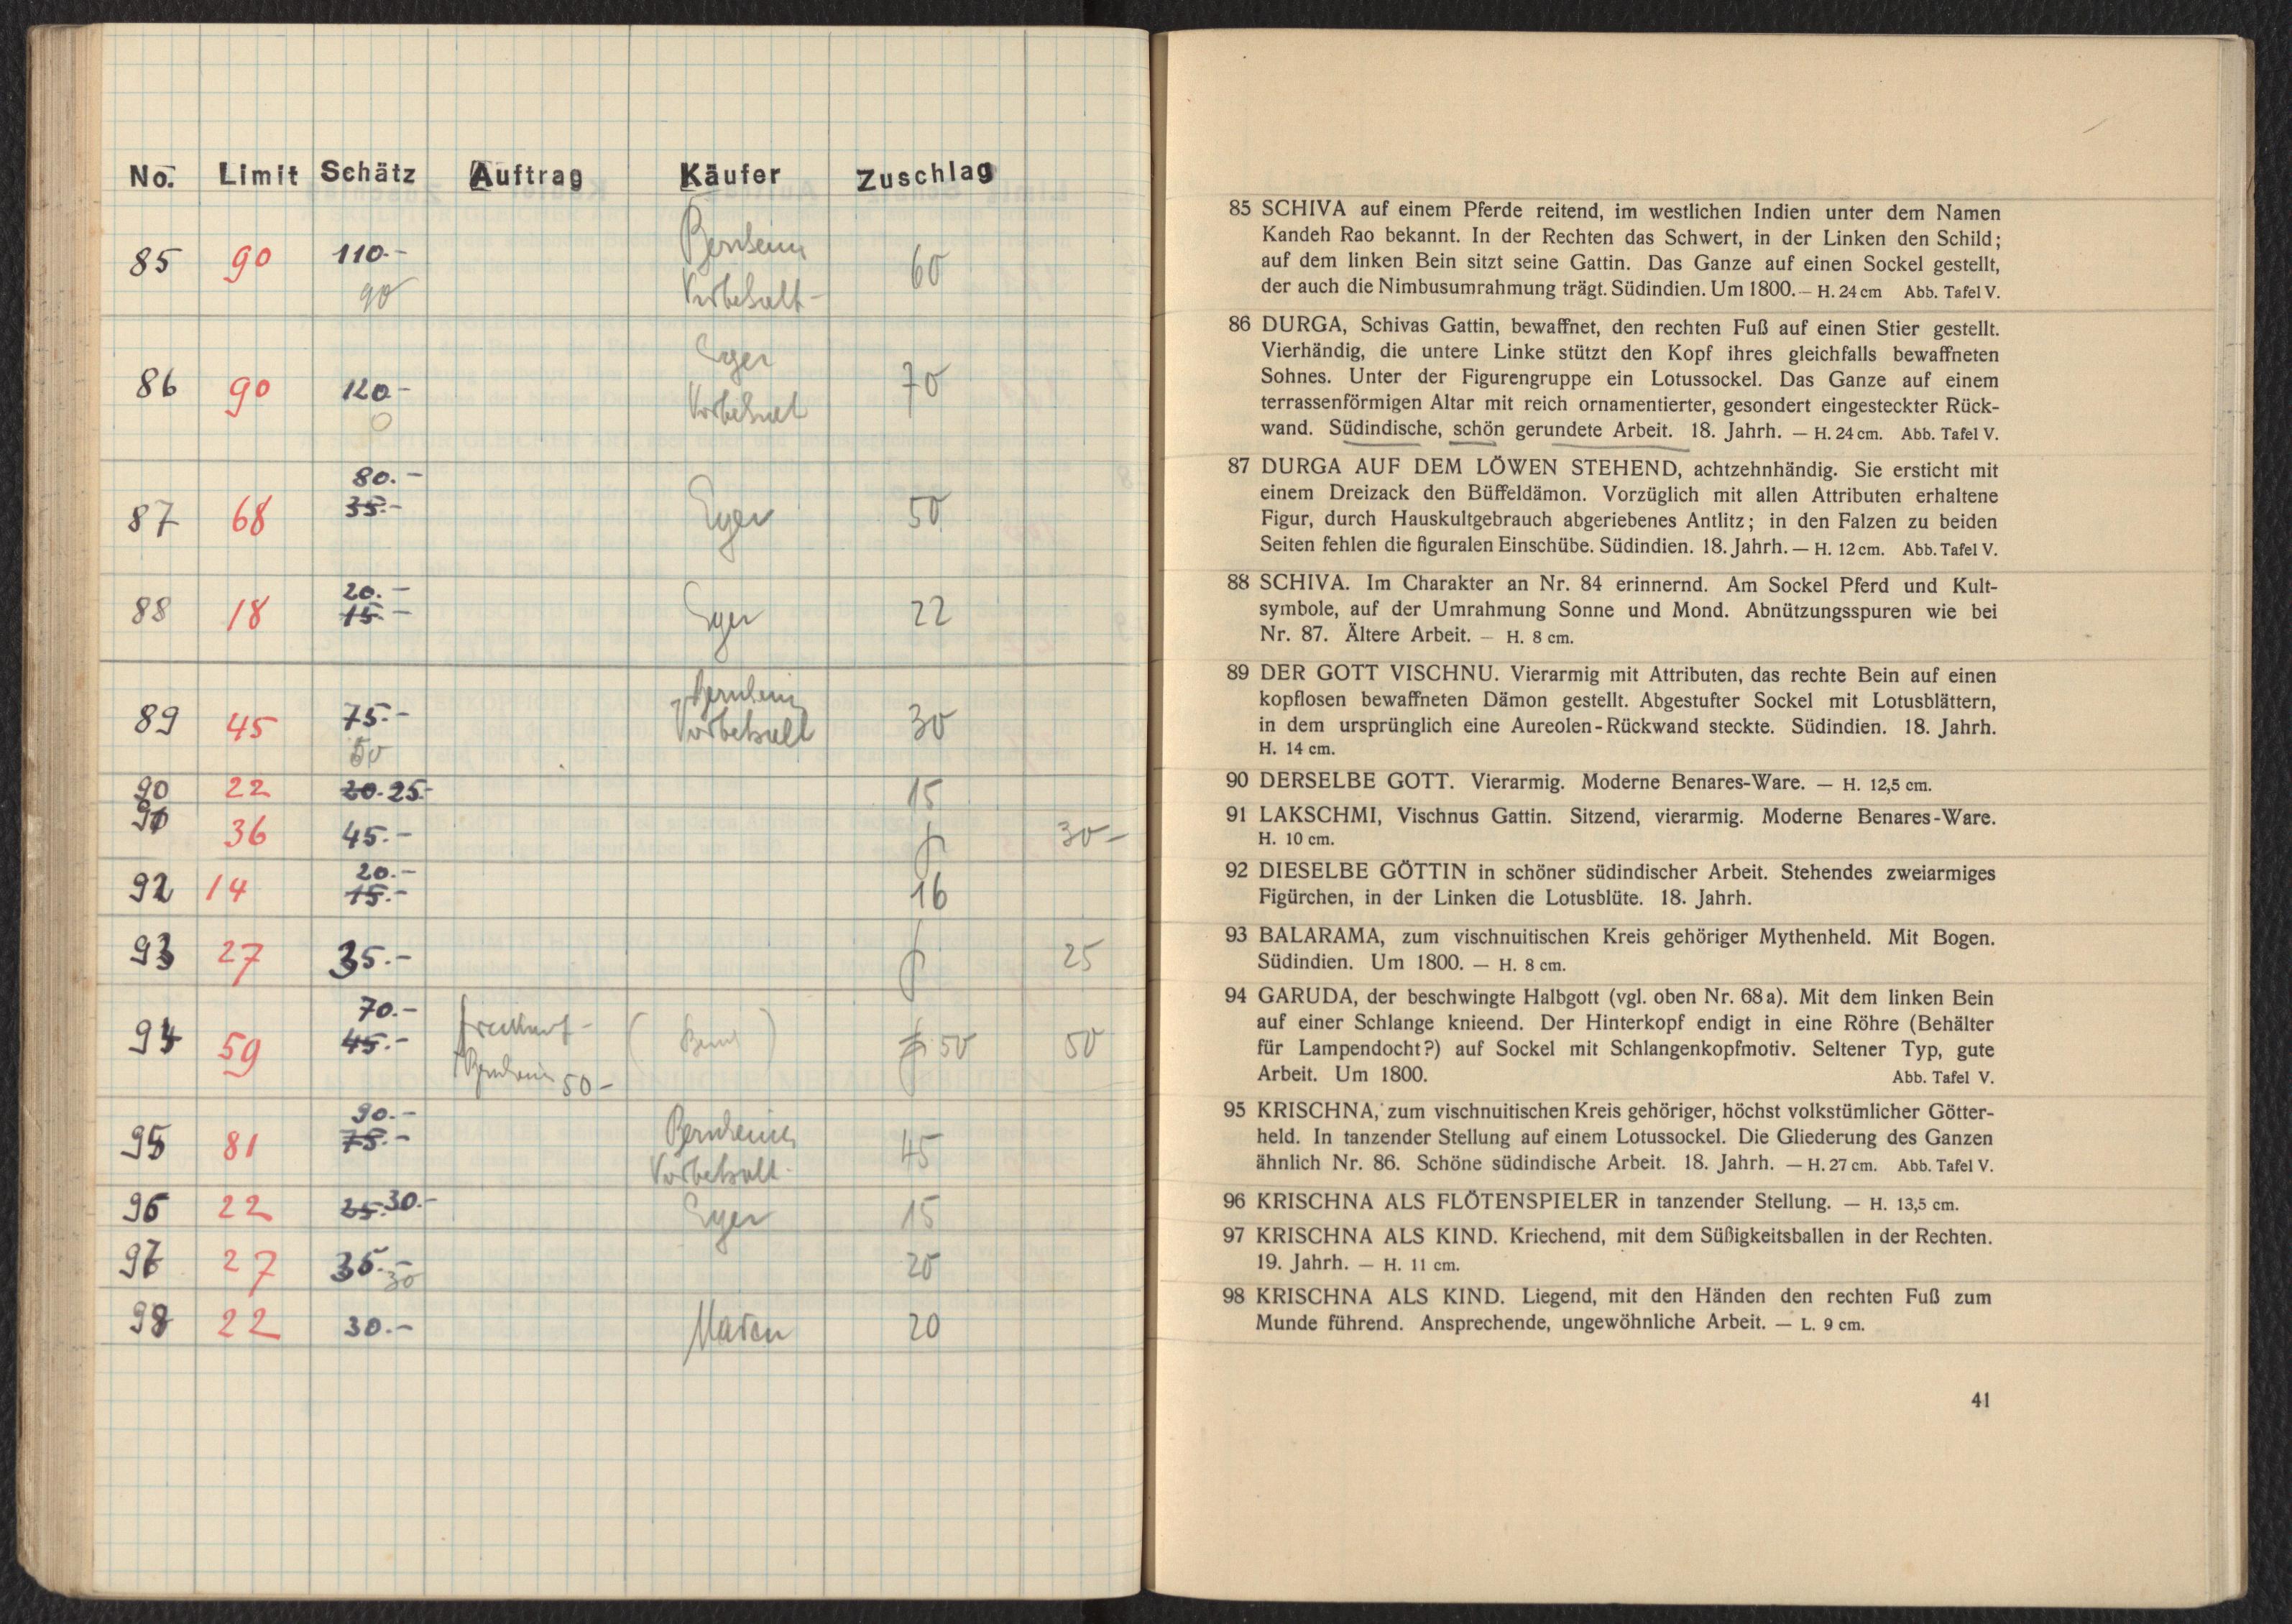 No. Limit Schätz Auftrag Käufer Zuschlag
85 90 110.- Bernheim 60
90 Vorbehalt-
86 90 120- Eger 70
0 Vorbehalt
80.-
87 68 35.- Eger 50
20.-
88 18 15.- Eger 22
Bernheim
89 45 75.- Vorbehalt 30
50
90 22 20.- 25.- 15
91 36 45.- 30-
20.-
92 14 15.- 16
93 27 35.- 25
70.-
94 59 45.- 50 50
Bernheim 50-
90.-
95 81 75.- Bernheimer 45
Vorbehalt-
96 22 25.- 30.- Eger 15
97 27 35.- 20
30
98 22 30.- 20
85 SCHIVA auf einem Pferde reitend, im westlichen Indien unter dem Namen
Kandeh Rao bekannt. In der Rechten das Schwert, in der Linken den Schild;
auf dem linken Bein sitzt seine Gattin. Das Ganze auf einen Sockel gestellt,
der auch die Nimbusumrahmung trägt. Südindien. Um 1800. — H. 24 cm Abb. Tafel V.
86 DURGA, Schivas Gattin, bewaffnet, den rechten Fuß auf einen Stier gestellt.
Vierhändig, die untere Linke stützt den Kopf ihres gleichfalls bewaffneten
Sohnes. Unter der Figurengruppe ein Lotussockel. Das Ganze auf einem
terrassenförmigen Altar mit reich ornamentierter, gesondert eingesteckter Rück-
wand. Südindische, schön gerundete Arbeit. 18. Jahrh. — H. 24 cm. Abb. Tafel V.
87 DURGA AUF DEM LÖWEN STEHEND, achtzehnhändig. Sie ersticht mit
einem Dreizack den Büffeldämon. Vorzüglich mit allen Attributen erhaltene
Figur, durch Hauskultgebrauch abgeriebenes Antlitz; in den Falzen zu beiden
Seiten fehlen die figuralen Einschübe. Südindien. 18. Jahrh. — H. 12 cm. Abb. Tafel V.
88 SCHIVA. Im Charakter an Nr. 84 erinnernd. Am Sockel Pferd und Kult-
symbole, auf der Umrahmung Sonne und Mond. Abnützungsspuren wie bei
Nr. 87. Ältere Arbeit. — H. 8 cm.
89 DER GOTT VISCHNU. Vierarmig mit Attributen, das rechte Bein auf einen
kopflosen bewaffneten Dämon gestellt. Abgestufter Sockel mit Lotusblättern,
in dem ursprünglich eine Aureolen-Rückwand steckte. Südindien. 18. Jahrh.
H. 14 cm.
90 DERSELBE GOTT. Vierarmig. Moderne Benares-Ware. — H. 12,5 cm.
91 LAKSCHMI, Vischnus Gattin. Sitzend, vierarmig. Moderne Benares-Ware.
H. 10 cm.
92 DIESELBE GÖTTIN in schöner südindischer Arbeit. Stehendes zweiarmiges
Figürchen, in der Linken die Lotusblüte. 18. Jahrh.
93 BALARAMA, zum vischnuitischen Kreis gehöriger Mythenheld. Mit Bogen.
Südindien. Um 1800. — H. 8 cm.
94 GARUDA, der beschwingte Halbgott (vgl. oben Nr. 68 a). Mit dem linken Bein
auf einer Schlange knieend. Der Hinterkopf endigt in eine Röhre (Behälter
für Lampendocht?) auf Sockel mit Schlangenkopfmotiv. Seltener Typ, gute
Arbeit. Um 1800. Abb. Tafel V.
95 KRISCHNA, zum vischnuitischen Kreis gehöriger, höchst volkstümlicher Götter-
held. In tanzender Stellung auf einem Lotussockel. Die Gliederung des Ganzen
ähnlich Nr. 86. Schöne südindische Arbeit. 18. Jahrh. — H. 27 cm. Abb. Tafel V.
96 KRISCHNA ALS FLÖTENSPIELER in tanzender Stellung. — H. 13,5 cm.
97 KRISCHNA ALS KIND. Kriechend, mit dem Süßigkeitsballen in der Rechten.
19. Jahrh. — H. 11 cm.
98 KRISCHNA ALS KIND. Liegend, mit den Händen den rechten Fuß zum
Munde führend. Ansprechende, ungewöhnliche Arbeit. — L. 9 cm.
41